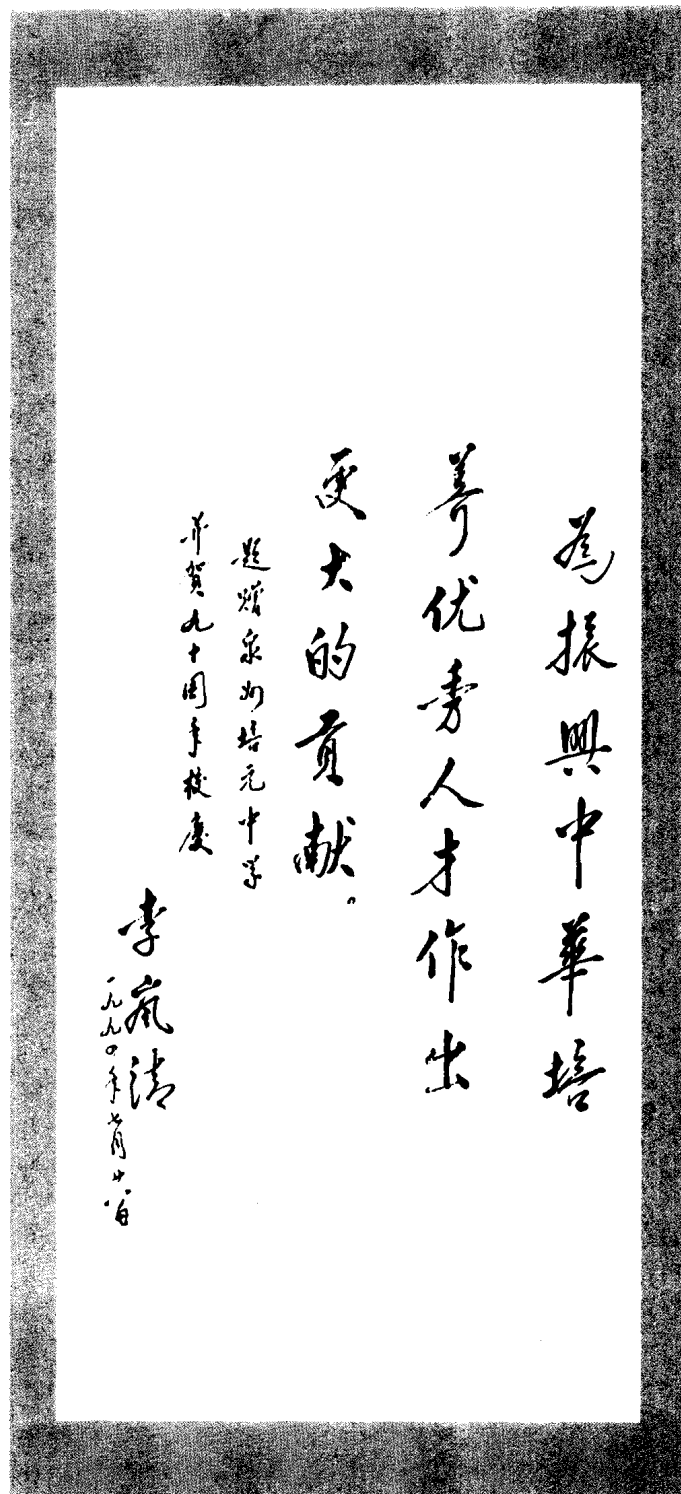 為振興中華培
养优秀人才作出
更大的贡献。
题赠泉州培元中学
并贺九十周年校庆
李岚清
一九九四年七月廿八日